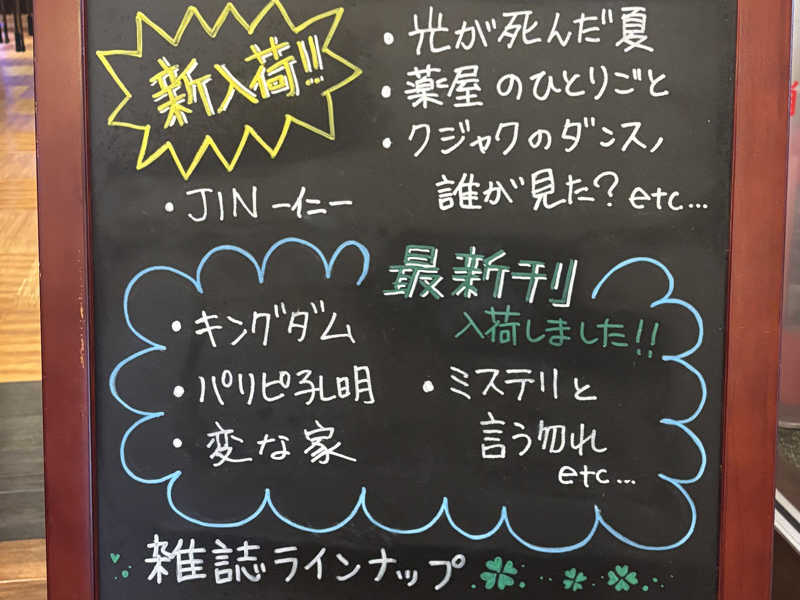 新入荷!!
・光が死んだ夏
・薬屋のひとりごと
・クジャクのダンス、
誰が見た?etc...
・JIN－仁－
最新刊
入荷しました!!
・キングダム
・パリピ孔明
・変な家
・ミステリと
言う勿れ
etc...
雑誌ラインナップ